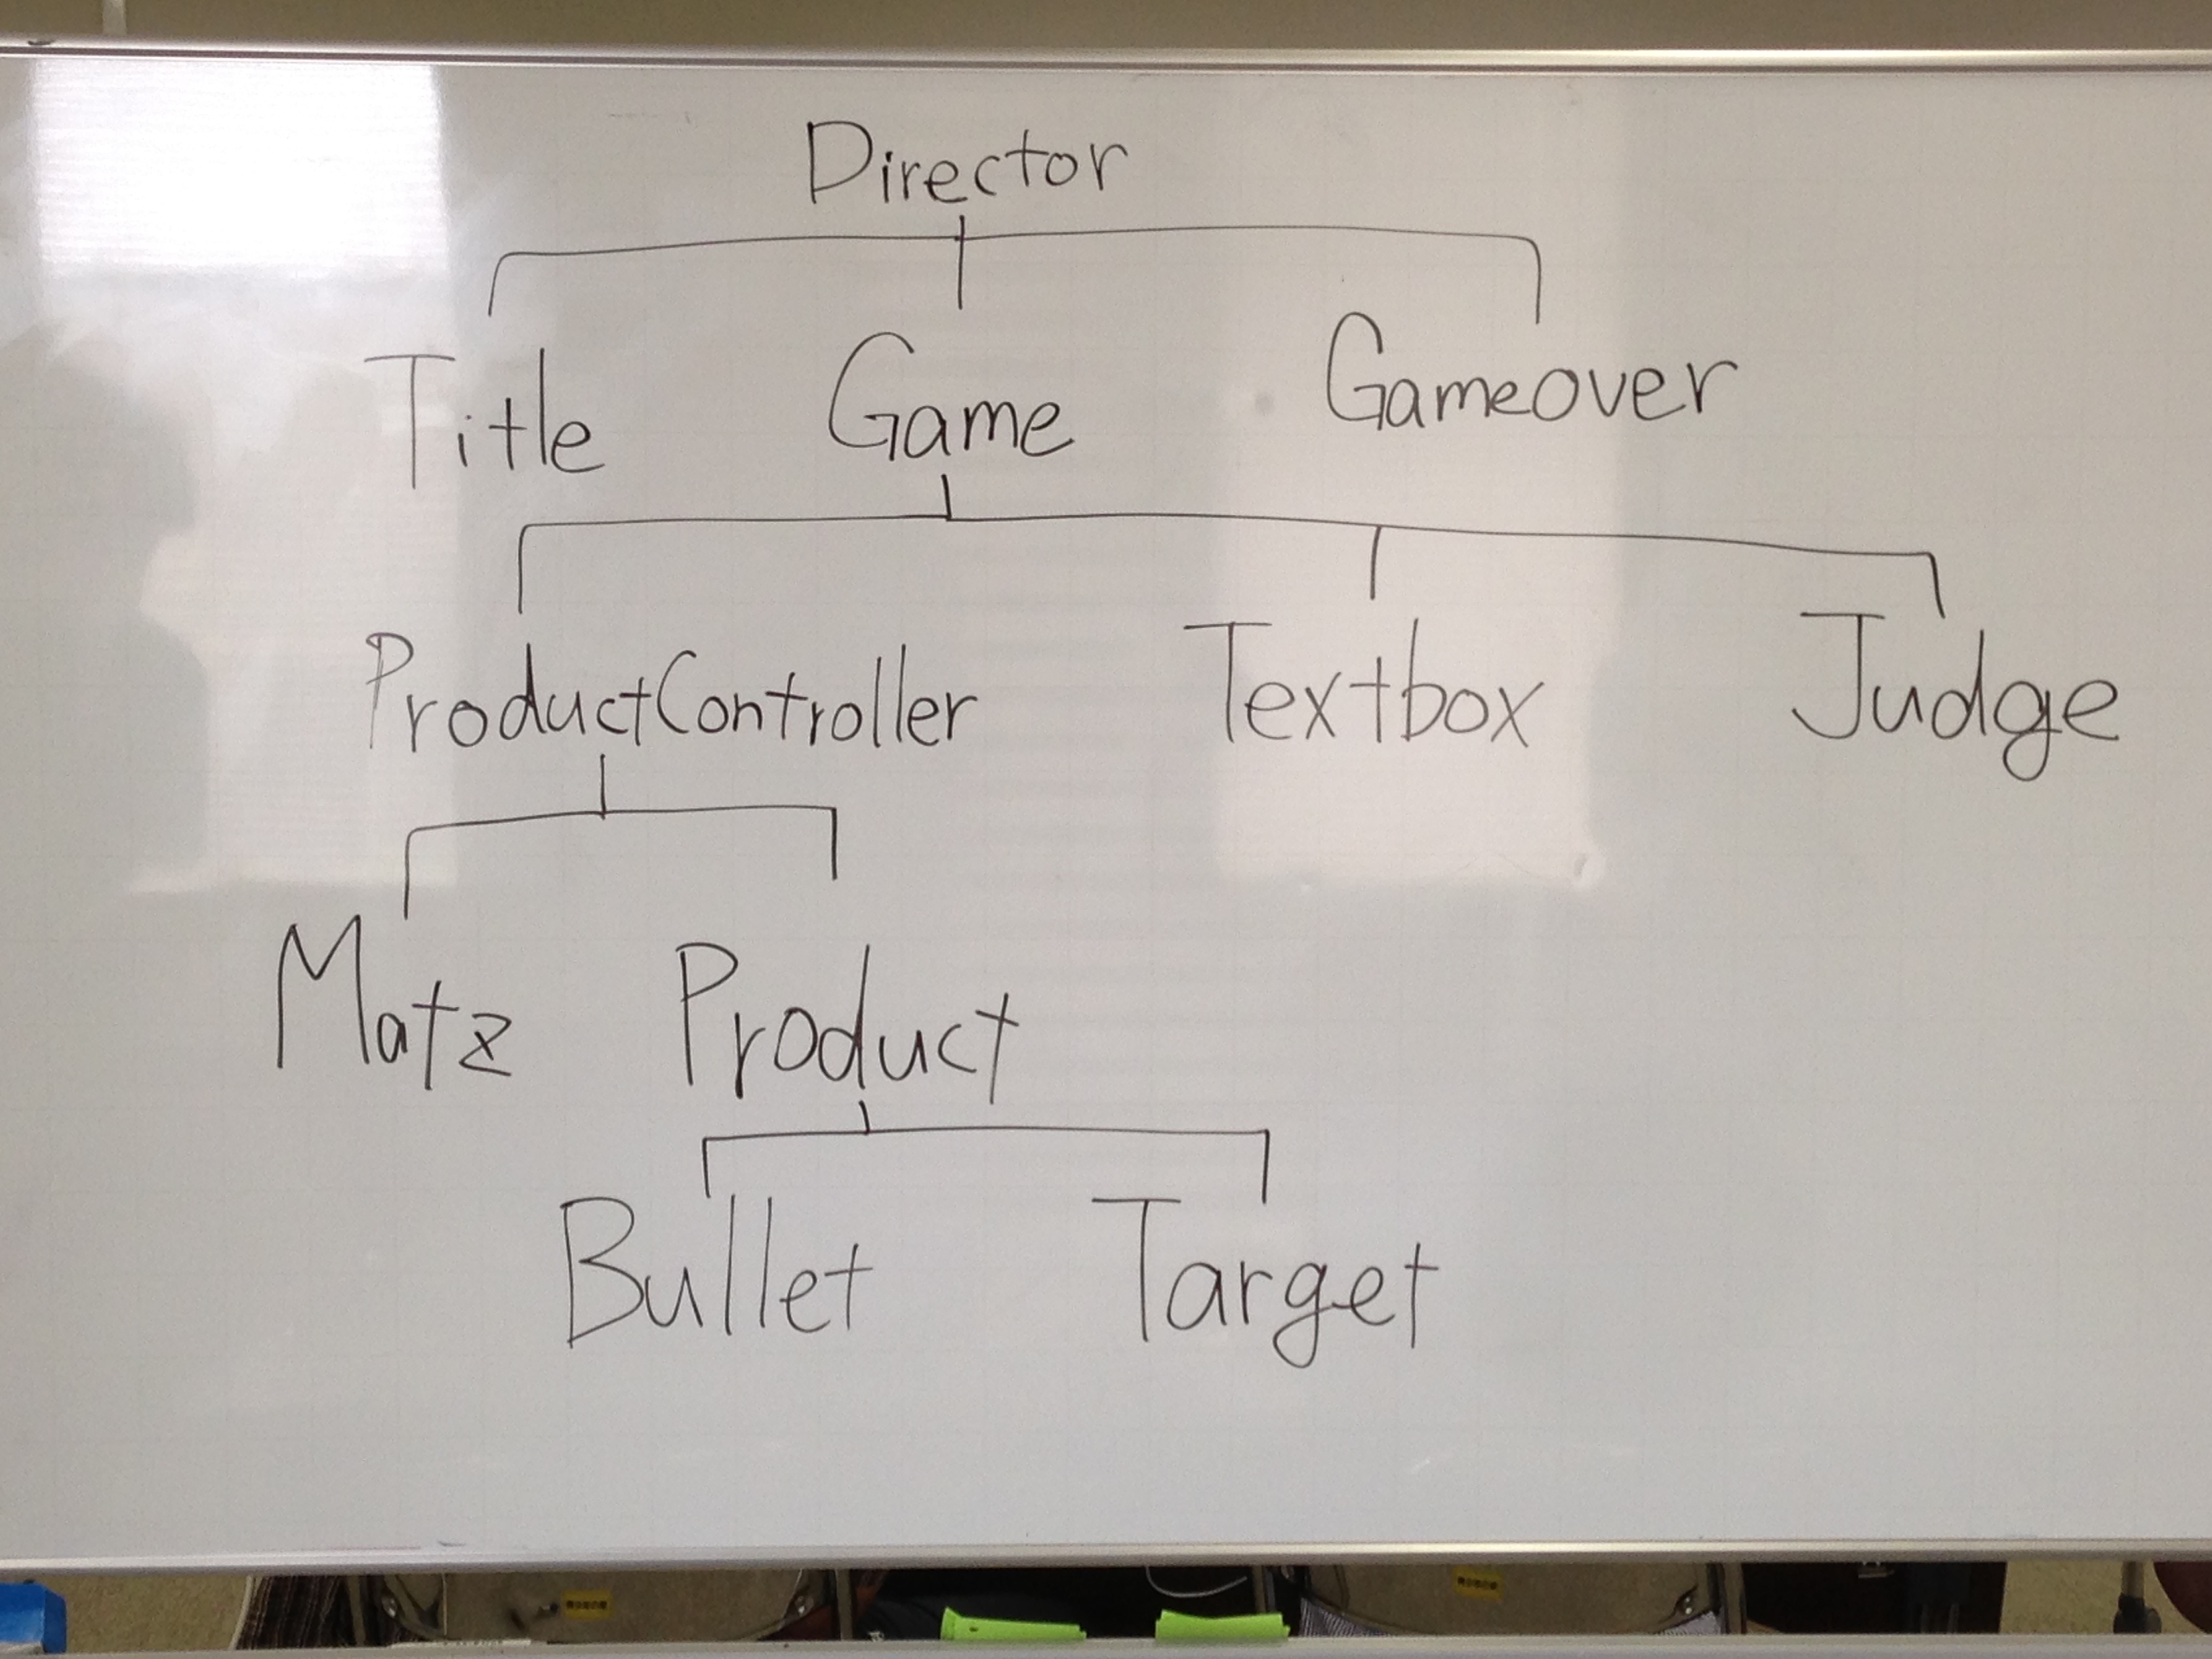 Director
Title Game Gameover
ProductController Textbox Judge
Matz Product
Bullet Target